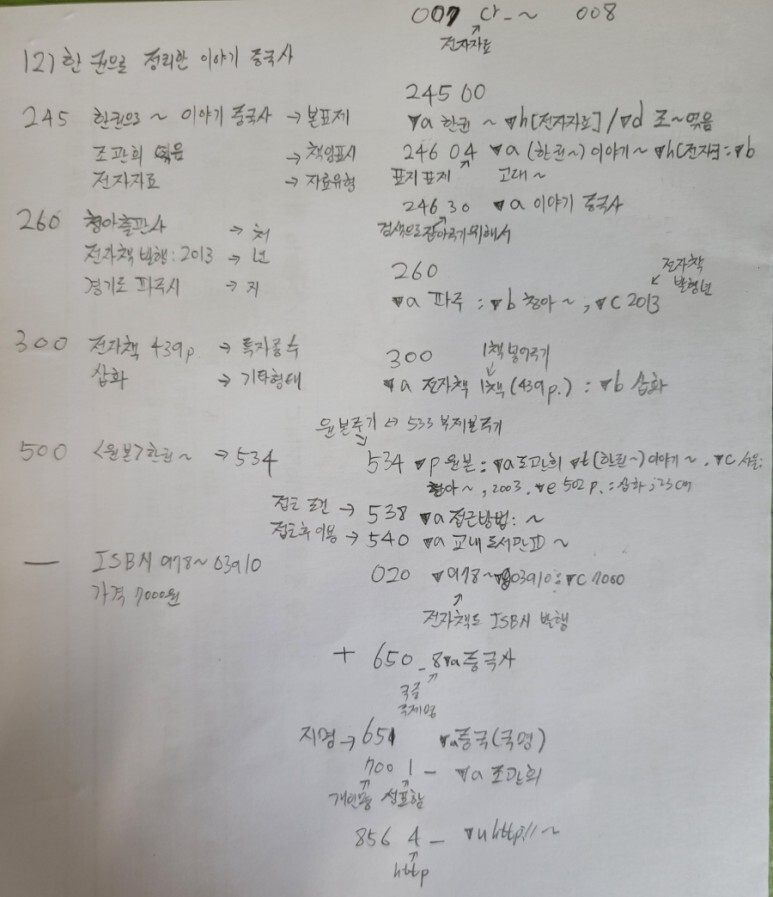 007 다_~ 008
전자자료
12) 한 권으로 정리한 이야기 중국사
245 한권으로 ~ 이야기 중국사 → 본표제
조관희 엮음 → 책임표시
전자자료 → 자료유형
245 00
▼a 한권 ~ ▼h[전자자료] / ▼d 조~엮음
246 04 ▼a (한권~) 이야기 ~ ▼h[전자: ▼b
표지표제 고대~
246 30 ▼a 이야기 중국사
검색으로 잡아주기 위해서
260 청아출판사 → 처
전자책 발행: 2013 → 년
경기도 파주시 → 지
260 전자책 발행년
▼a 파주 : ▼b 청아~, ▼c 2013
300 전자책 439p. → 특자종수
삽화 → 기타형태
300 1책 붙여주기
▼a 전자책 1책 (439p.) : ▼b 삽화
원본주기 ↔ 533 복제본주기
500 <원본> 한권~ → 534
534 ▼p 원본 : ▼a 조관희 ▼t (한권~) 이야기~. ▼c 서울:
청아~, 2003. ▼e 502p. : 삽화 ; 23cm
접근 조건 → 538 ▼a 접근방법: ~
접근후 이용 → 540 ▼a 교내 도서관ID ~
— ISBN 978~03910
가격 7000원
020 ▼978~03910: ▼c 7000
전자책도 ISBN 발행
+ 650 _8 ▼a 중국사
국중
주제명
지명 → 651 ▼a 중국(국명)
700 1_ ▼a 조관희
개인명 성포함
856 4_ ▼u http// ~
http